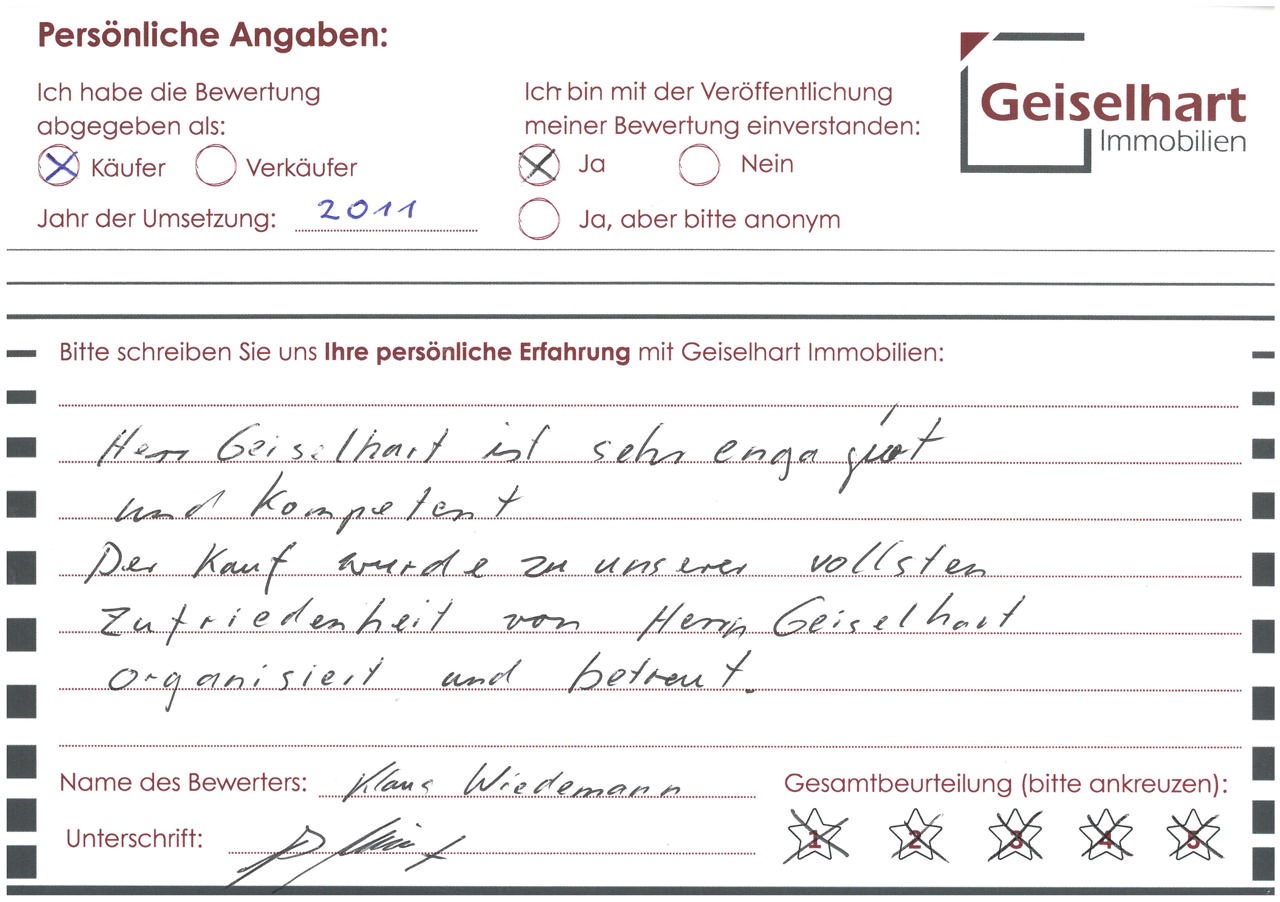 Persönliche Angaben:
Ich habe die Bewertung
abgegeben als:
Käufer Verkäufer
Jahr der Umsetzung: 2011
Ich bin mit der Veröffentlichung
meiner Bewertung einverstanden:
Ja Nein
Ja, aber bitte anonym
Geiselhart
Immobilien
Bitte schreiben Sie uns Ihre persönliche Erfahrung mit Geiselhart Immobilien:
Herr Geiselhart ist sehr engagiert
und kompetent
Der Kauf wurde zu unserer vollsten
Zufriedenheit von Herrn Geiselhart
organisiert und betreut.
Name des Bewerters: Klaus Wiedemann
Unterschrift:
Gesamtbeurteilung (bitte ankreuzen):
1 2 3 4 5